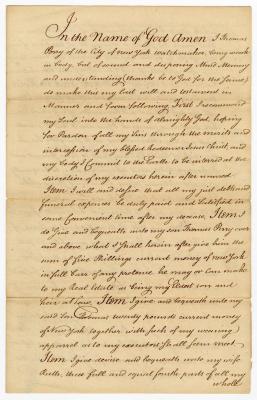 In the Name of God Amen I Thomas
Perry of the City of New York watchmaker, being weak
in body, but of sound and disposing Mind Memory
and understanding (thanks be to God for the same)
do make this my last will and testament in
Manner and Form following. First I recommend
my Soul into the hands of almighty God, hoping
for Pardon of all my Sins through the merits and
intercession of my blessed Redeemer Jesus Christ, and
my body I Commit to the Earth to be interred at the
discretion of my executors herein after named.
Item I will and desire that all my just debts and
funeral expences be duly paid and Satisfied in
some Convenient time after my decease. Item I
do Give and bequeath unto my son Thomas Perry over
and above what I Shall herein after give him the
sum of five Shillings current money of New York
in full Barr of any pretence he may or Can make
to my Real Estate as being my Eldest son and
heir at law, Item I give and bequeath unto my
said Son Thomas twenty pounds current money
of New York together with such of my wearing
apparel as to my executors Shall seem meet
Item I give devise and bequeath unto my wife
Ruth, three full and equal fourth parts of all my
whole